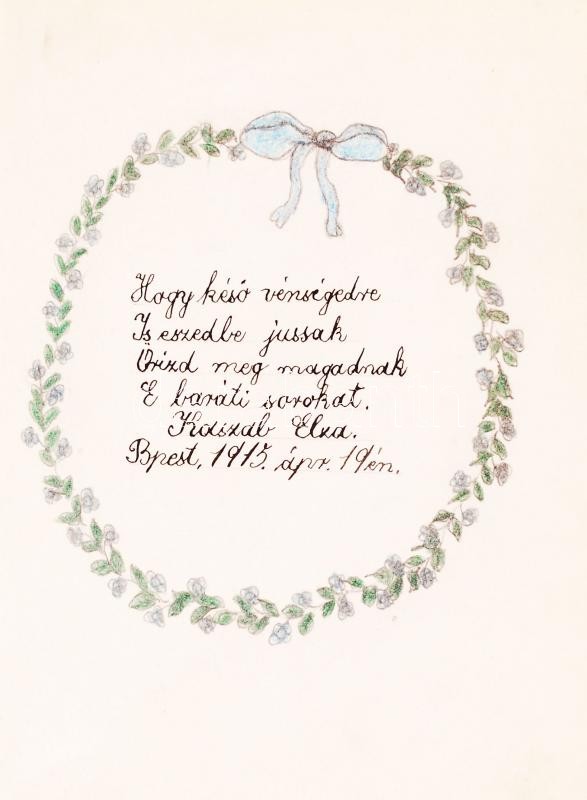 Hogy késő vénségedre
Is eszedbe jussak
Őrizd meg magadnak
E baráti sorokat.
Kaszab Elza.
Bpest, 1915. ápr. 19én.